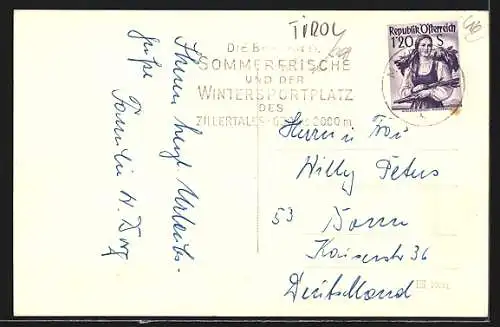 TIROL
Republik Österreich
1'20 S
SOMMERFRISCHE
UND DER
WINTERSPORTPLATZ
DES
ZILLERTALES 2000 m
Ihnen herzl. Urlaubs-
grüße
Familie W.
Herrn u Frau
Willy Peters
53 Bonn
Kaiserstr 36
Deutschland